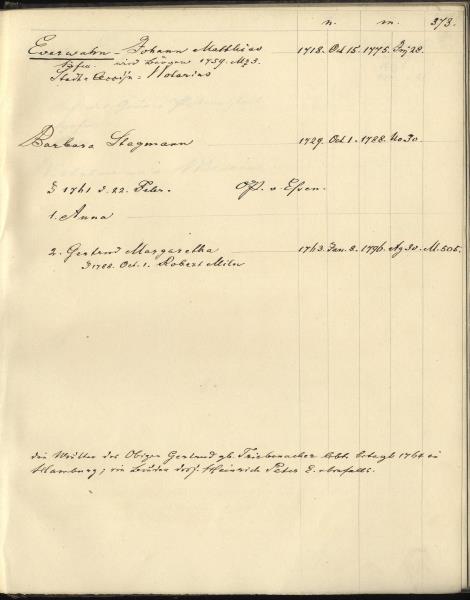 n. m. 373.
Everwahn - Johann Matthias 1718. Oct 15. 1775. 28.
wird Bürger 1759. Mz 3.
Stadt- Notarius
Barbara Stegmann 1729. Oct. 1. 1788. No 30.
1761 d. 22. Febr. v. Essen.
1. Anna
2. Gertrud Margaretha 1763. Jan. 8. 1796. Ag 30. M. 505.
1788. Oct. 1. Robert Miln
die Mutter des Obigen Gertrud gb. lebt betagt 1764 in
Hamburg; ein Bruder Heinrich Peter E. ebenfalls.